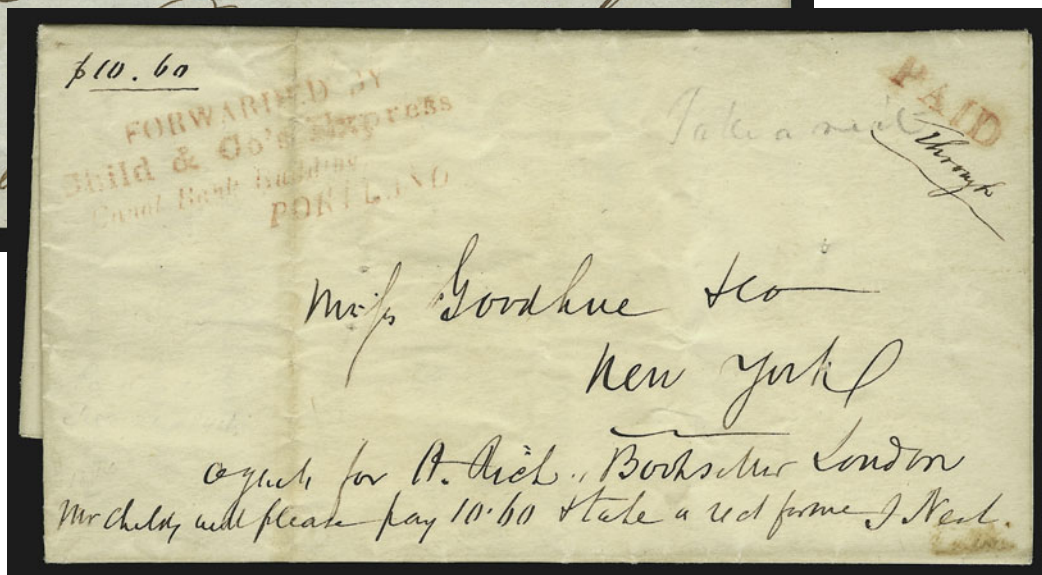 $10.60
FORWARDED BY
Child & Co's Express
Canal Bank Building
PORTLAND
PAID
Take a
through
Mess Goodhue & Co
New York
agents for O. Rich, Bookseller London
Mr Childs will please pay 10.60 & take a rect for me J Neal.